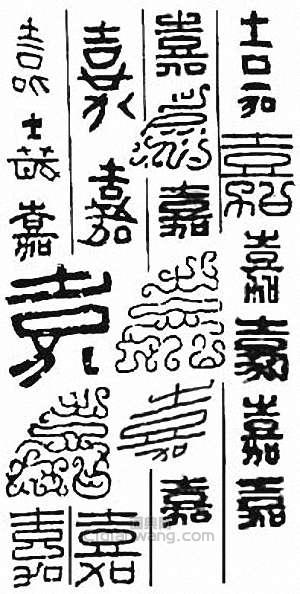 嘉嘉嘉嘉嘉嘉
嘉嘉嘉嘉嘉嘉
嘉嘉嘉
嘉嘉嘉嘉嘉嘉
cidianwang.com